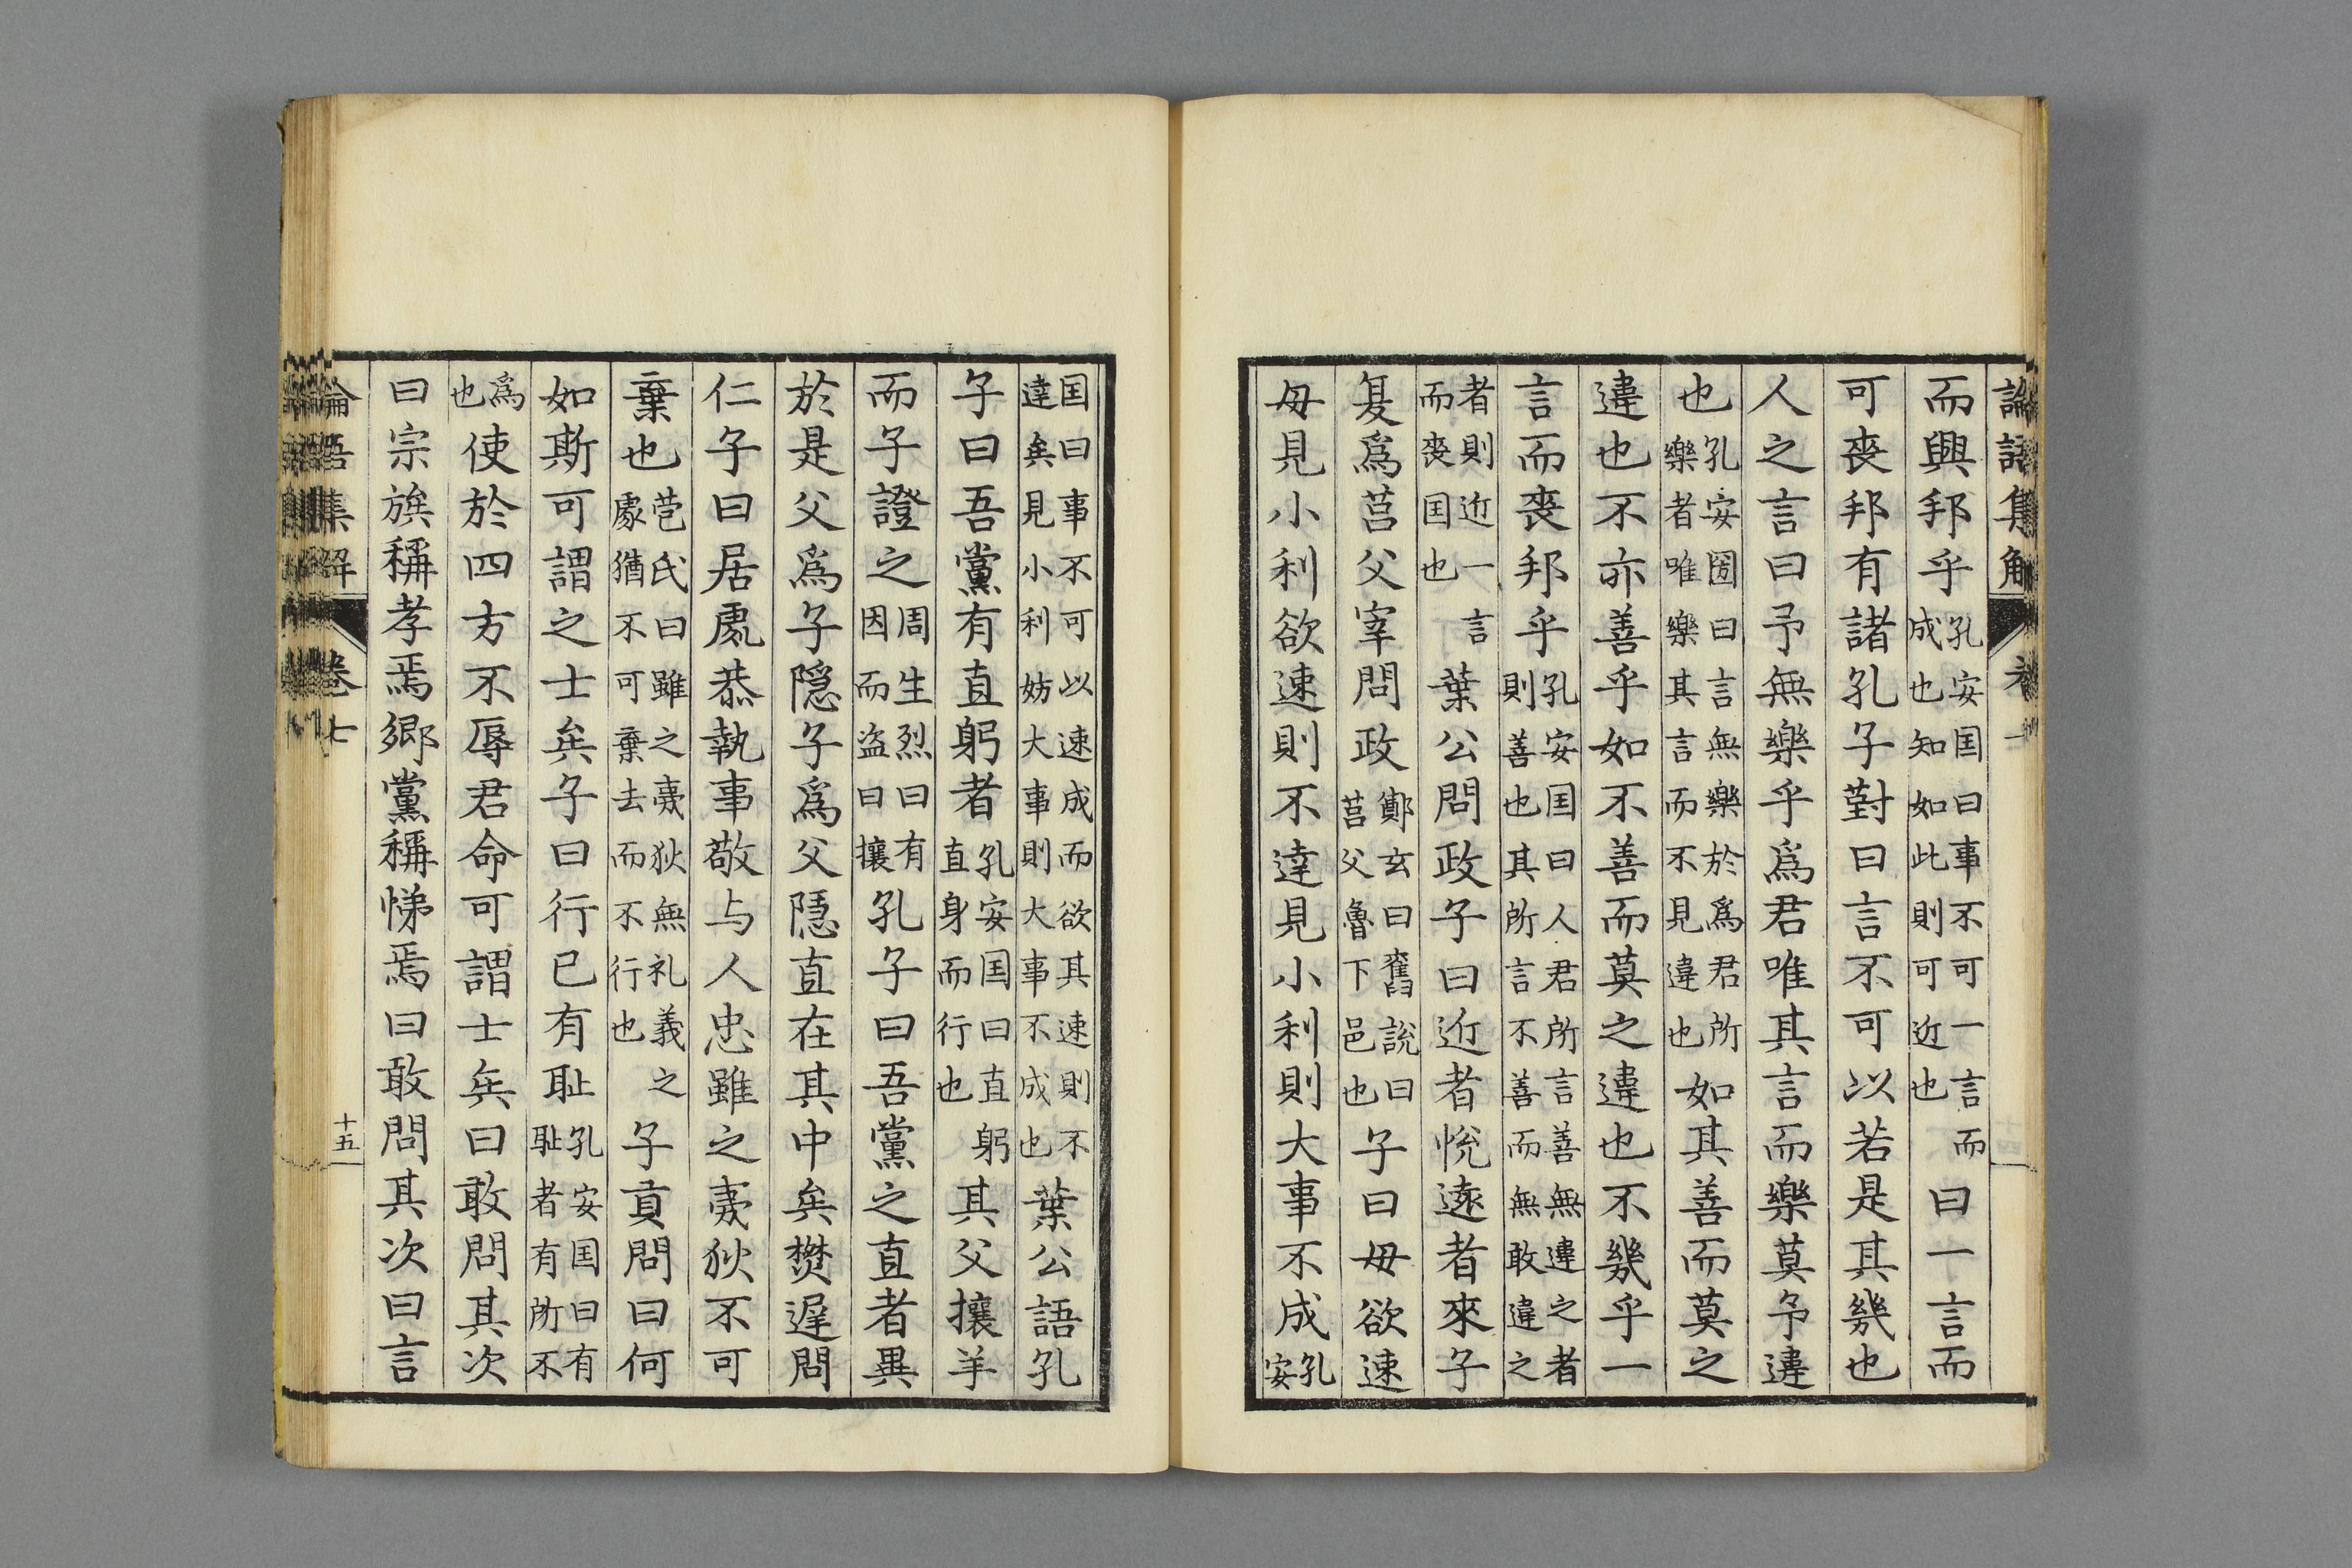 論語集解
而興邦乎孔安囯曰事不可一言而成也知如此則可近也曰一言而
可喪邦有諸孔子對曰言不可以若是其幾也
人之言曰予無樂乎爲君唯其言而樂莫予違
也孔安囶曰言無樂於爲君所樂者唯樂其言而不見違也如其善而莫之
違也不亦善乎如不善而莫之違也不幾乎一
言而喪邦乎孔安囯曰人君所言善無違之者則善也其所言不善而無敢違之
者則近一言而喪囯也葉公問政子曰近者悅遠者來子
夏爲莒父宰問政鄭玄曰舊說曰莒父魯下邑也子曰毋欲速
毋見小利欲速則不達見小利則大事不成孔安
囯曰事不可以速成而欲其速則不達矣見小利妨大事則大事不成也葉公語孔
子曰吾黨有直躬者孔安囯曰直躬直身而行也其父攘羊
而子證之周生烈曰有因而盗曰攘孔子曰吾黨之直者異
於是父爲子隱子爲父隱直在其中矣樊遟問
仁子曰居處恭執事敬与人忠雖之夷狄不可
棄也苞氏曰雖之夷狄無礼義之處猶不可棄去而不行也子貢問曰何
如斯可謂之士矣子曰行已有耻孔安囯曰有耻者有所不
爲也使於四方不辱君命可謂士矣曰敢問其次
曰宗族稱孝焉郷黨稱悌焉曰敢問其次曰言
論語集解 卷七 十五